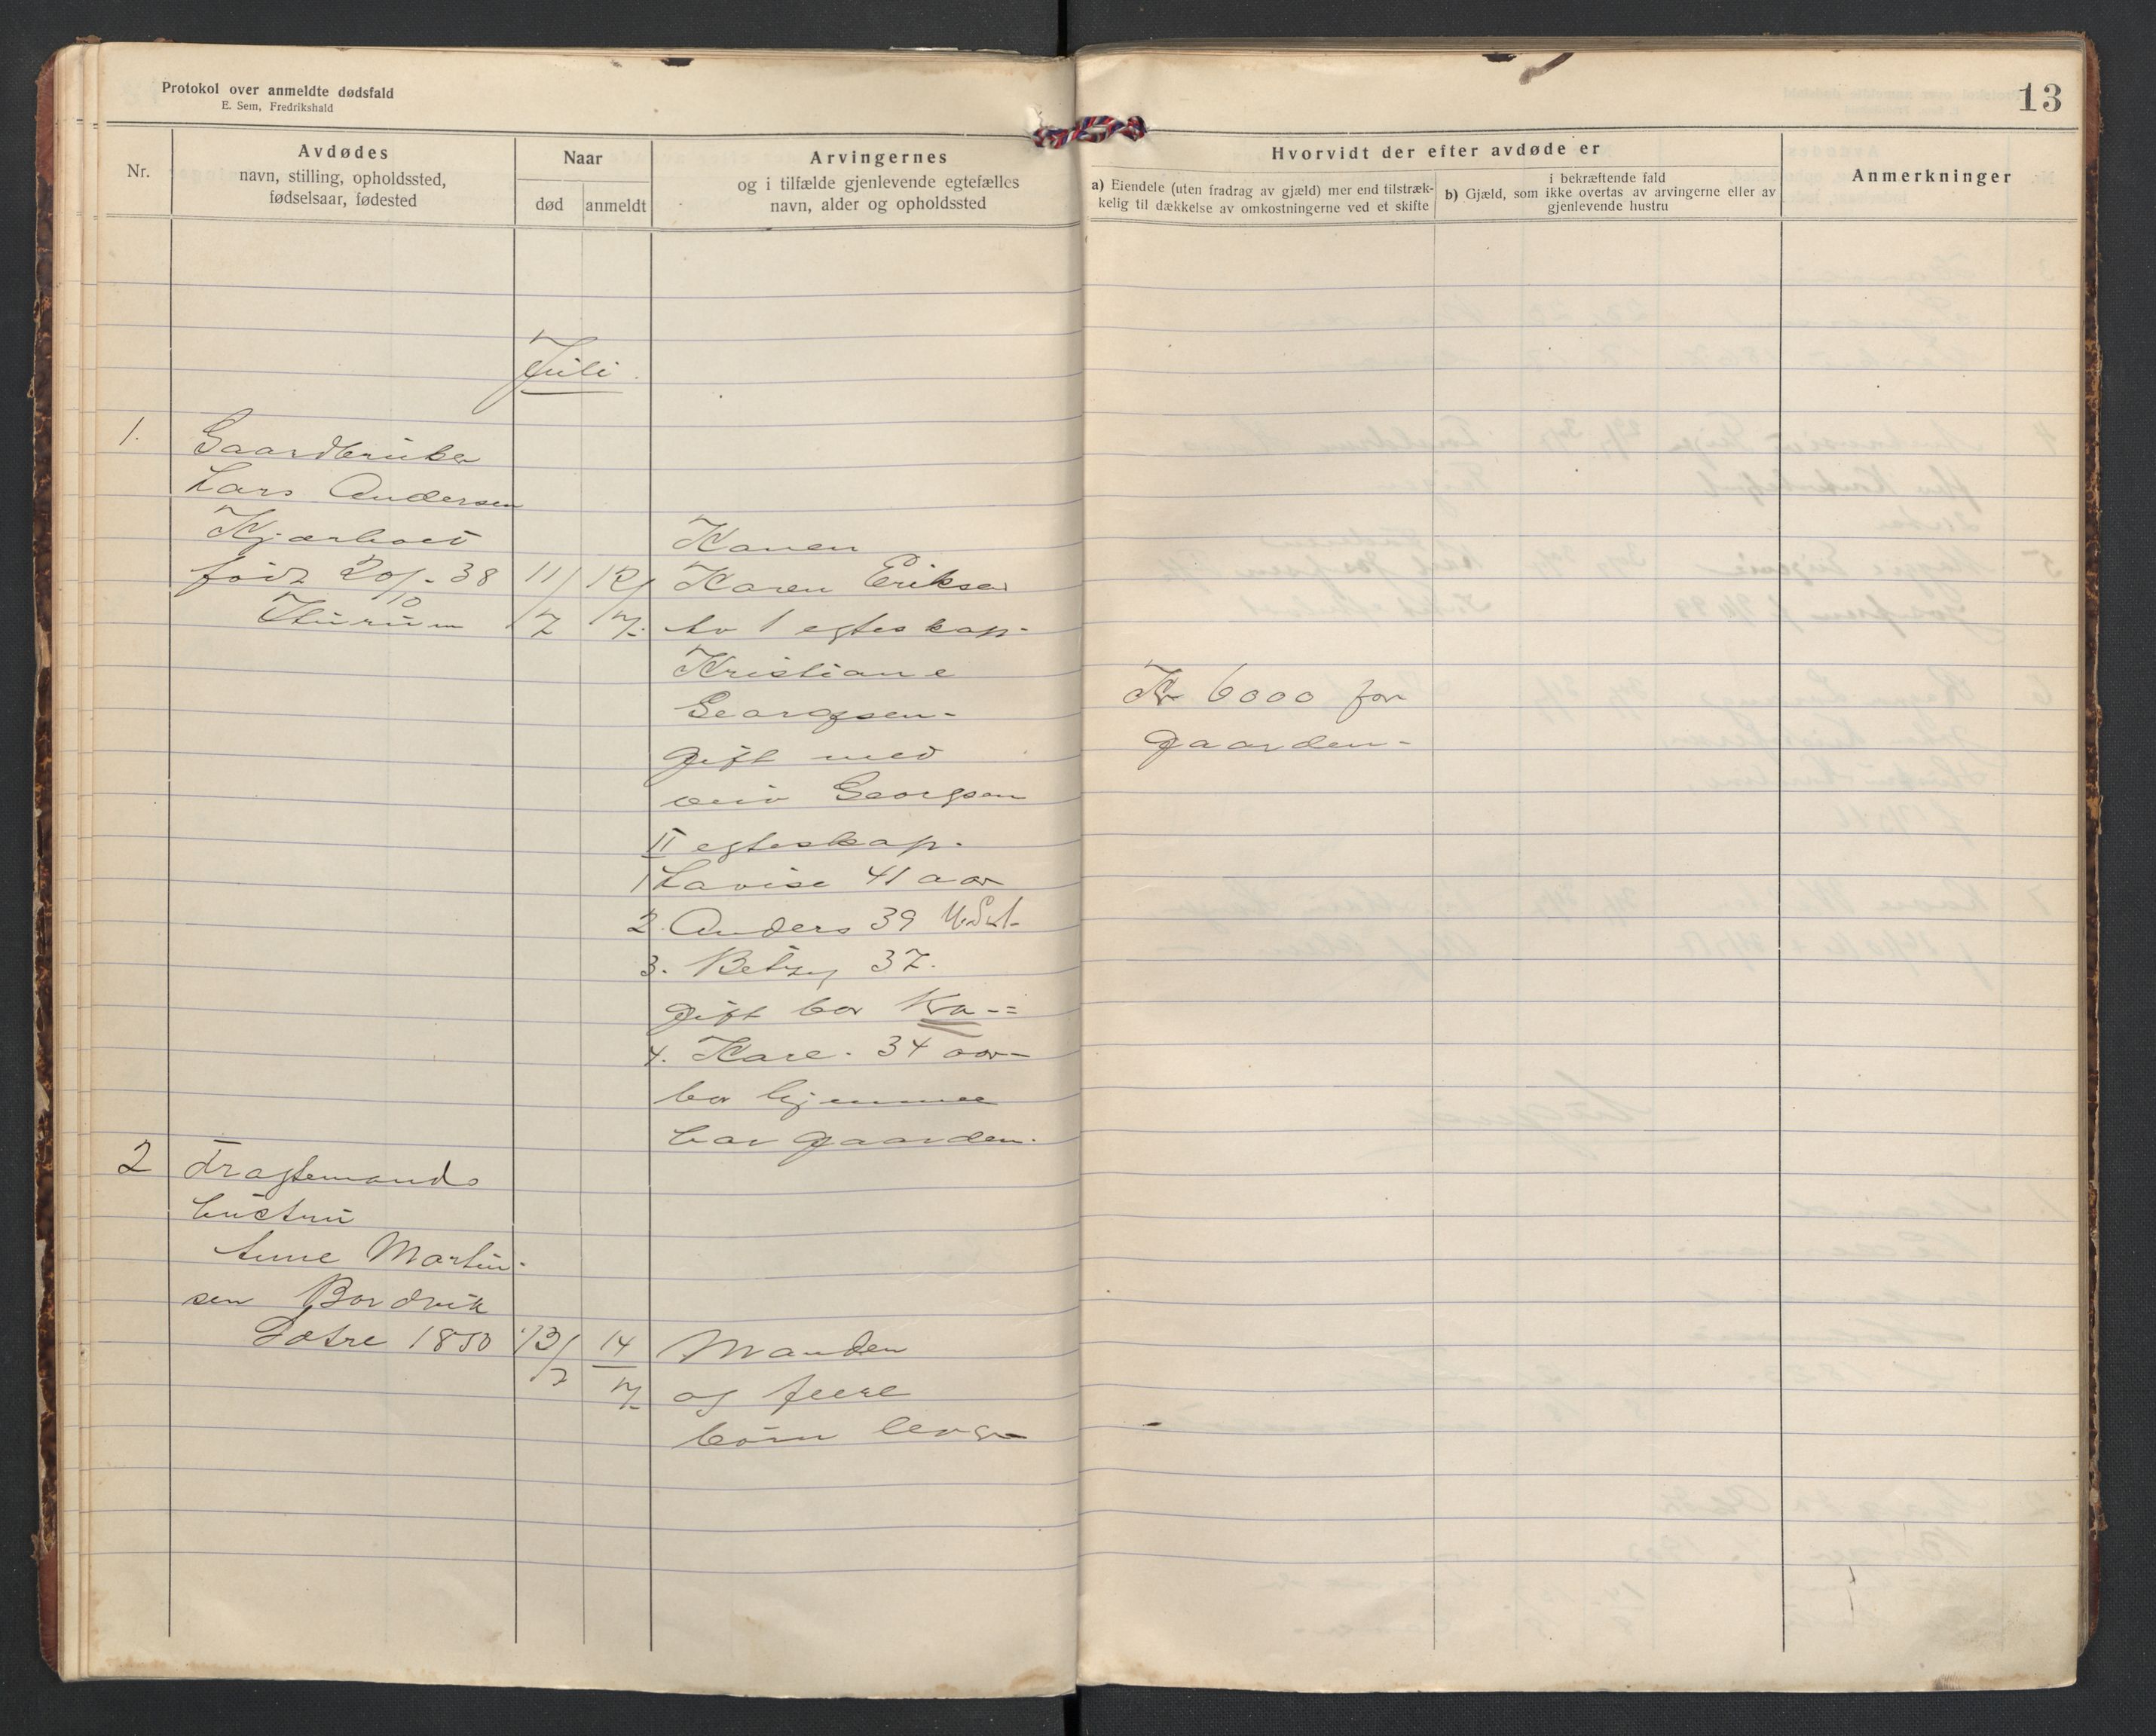 Protokol over anmeldte dødsfald
E. Sem, Fredrikshald
13
Nr.
Avdødes
navn, stilling, opholdssted,
fødselsaar, fødested
Naar
død
anmeldt
Arvingernes
og i tilfælde gjenlevende egtefælles
navn, alder og opholdssted
Hvorvidt der efter avdøde er
a) Eiendele (uten fradrag av gjæld) mer end tilstræk-
kelig til dækkelse av omkostningerne ved et skifte
i bekræftende fald
b) Gjæld, som ikke overtas av arvingerne eller av
gjenlevende hustru
Anmerkninger
Juli
1.
Gaardbruker
Lars Andersen
født 20/10 - 38
Hurum
11/7
12/7
Konen
Karen Eriksen
av 1 egteskap
Kristiane
Georgsen
gift med
Georgsen
II egteskap.
1 Lovise 41 aar
2. Anders 39
3. Betzy 37.
gift bor Kra
4. Kare. 34 aar
bor hjemme
har gaarden.
Kr 6000 for
gaarden
2
Fragtemands
hustru
Anne Martin-
sen Bordvik
Sætre 1850
13/7
14/7
Manden
og flere
børn lever